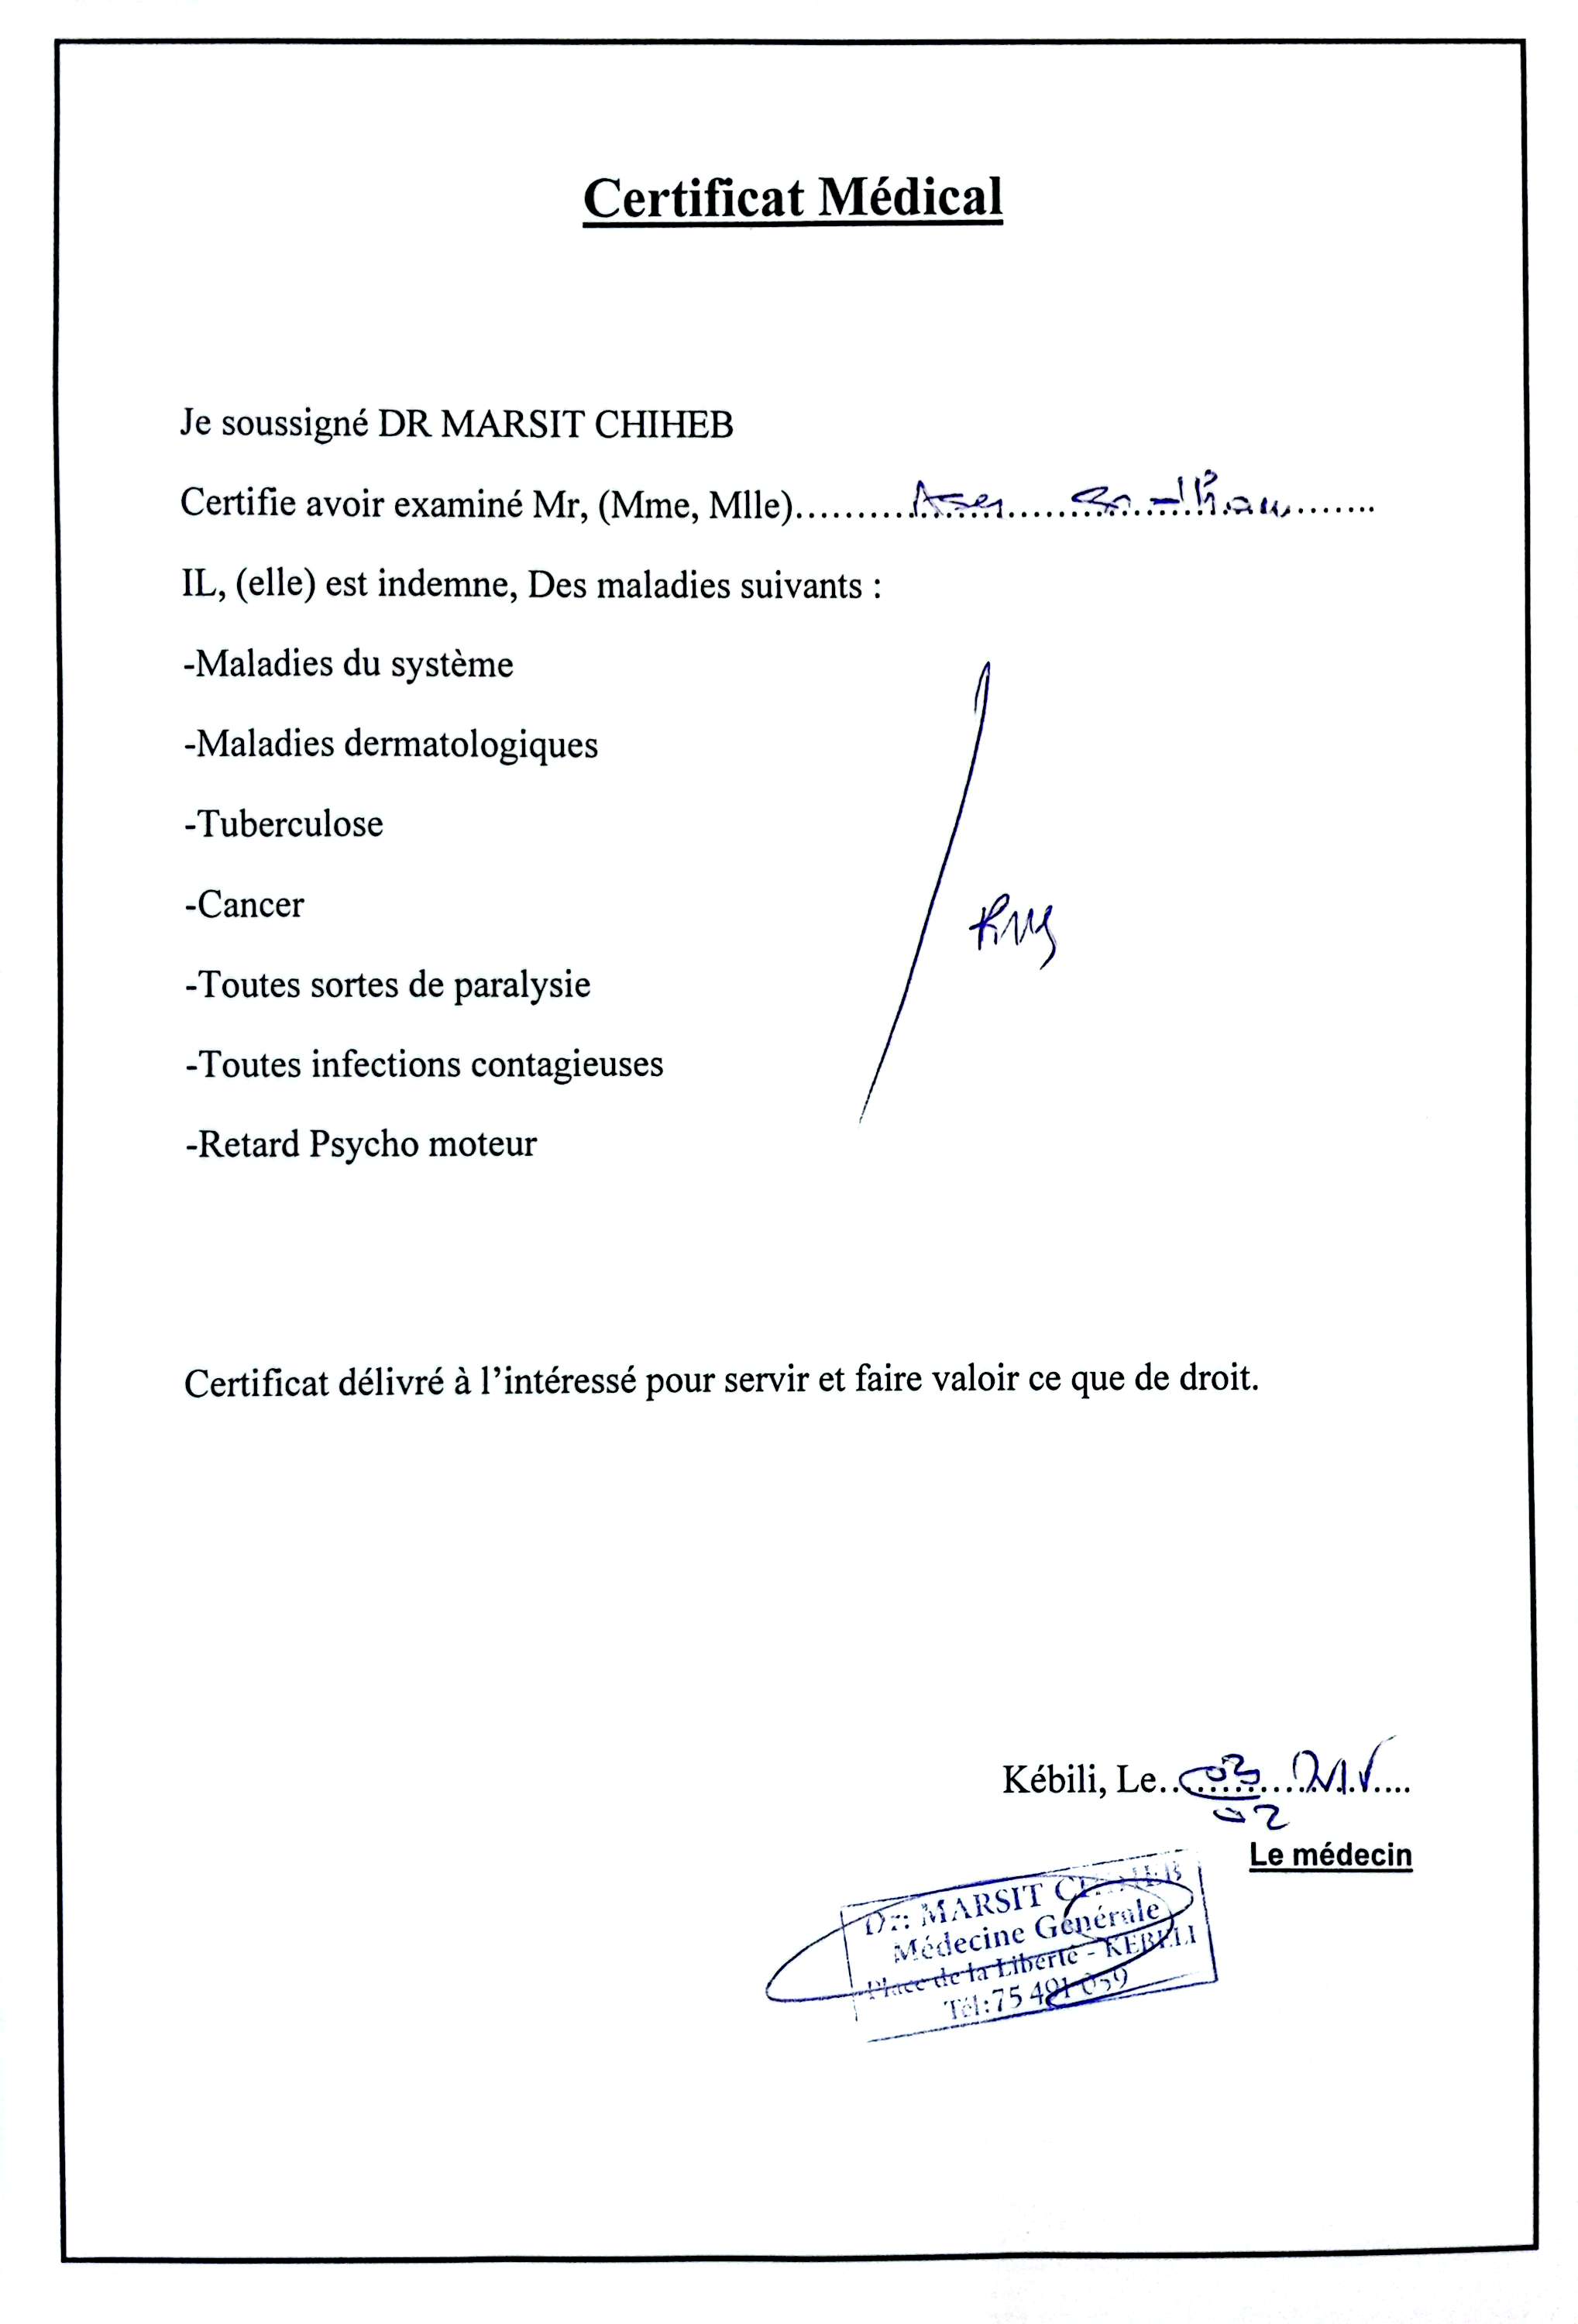 Certificat Médical
Je soussigné DR MARSIT CHIHEB
Certifie avoir examiné Mr, (Mme, Mlle)
IL, (elle) est indemne, Des maladies suivants :
-Maladies du système
-Maladies dermatologiques
-Tuberculose
-Cancer
-Toutes sortes de paralysie
-Toutes infections contagieuses
-Retard Psycho moteur
Certificat délivré à l'intéressé pour servir et faire valoir ce que de droit.
Kébili, Le 03
02
Le médecin
Dr: MARSIT CHIHEB
Médecine Générale
Place de la Liberté - KEBILI
Tél:75 491 059